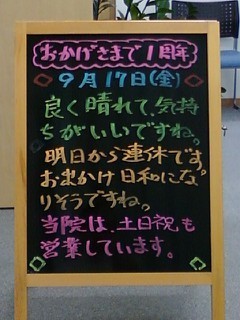 おかげさまで1周年
9月17日(金)
良く晴れて気持
ちがいいですね。
明日から連休です。
お出かけ日和にな
りそうですね。
当院は、土日祝も
営業しています。